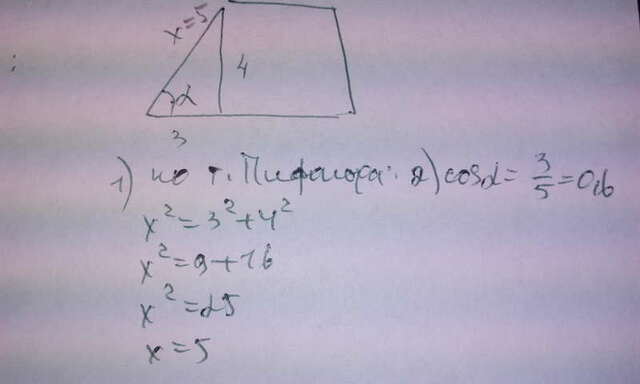 x=5
α
4
3
1) по т. Пифагора: 2) cosα = 3/5 = 0,6
x² = 3² + 4²
x² = 9 + 16
x² = 25
x = 5